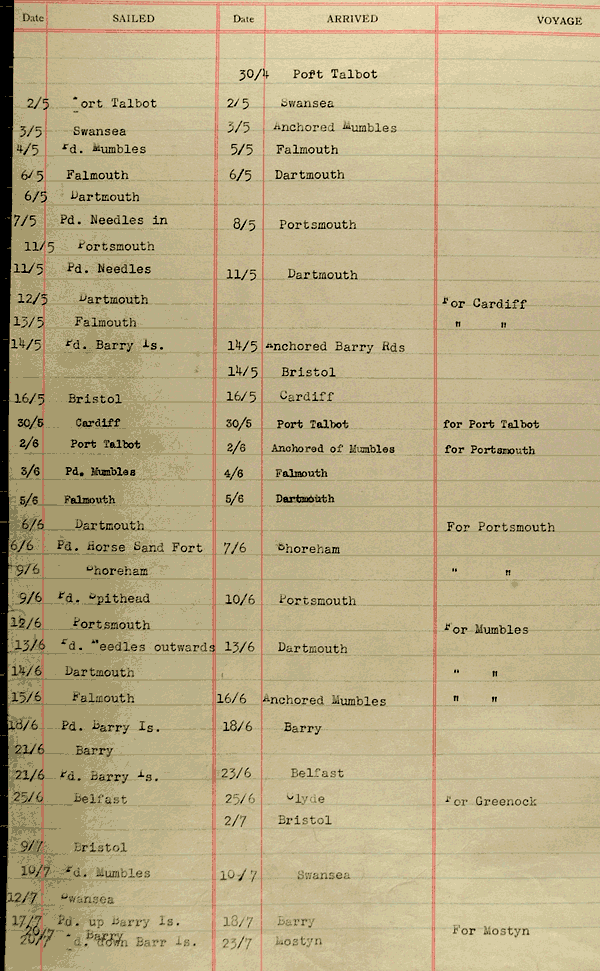 Date SAILED Date ARRIVED VOYAGE
30/4 Port Talbot
2/5 Port Talbot 2/5 Swansea
3/5 Swansea 3/5 Anchored Mumbles
4/5 Pd. Mumbles 5/5 Falmouth
6/5 Falmouth 6/5 Dartmouth
6/5 Dartmouth
7/5 Pd. Needles in 8/5 Portsmouth
11/5 Portsmouth
11/5 Pd. Needles 11/5 Dartmouth
12/5 Dartmouth For Cardiff
13/5 Falmouth " "
14/5 Pd. Barry Is. 14/5 Anchored Barry Rds
14/5 Bristol
16/5 Bristol 16/5 Cardiff
30/5 Cardiff 30/5 Port Talbot for Port Talbot
2/6 Port Talbot 2/6 Anchored of Mumbles for Portsmouth
3/6 Pd. Mumbles 4/6 Falmouth
5/6 Falmouth 5/6 Dartmouth
6/6 Dartmouth For Portsmouth
6/6 Pd. Horse Sand Fort 7/6 Shoreham
9/6 Shoreham " "
9/6 Pd. Spithead 10/6 Portsmouth
12/6 Portsmouth For Mumbles
13/6 Pd. Needles outwards 13/6 Dartmouth
14/6 Dartmouth " "
15/6 Falmouth 16/6 Anchored Mumbles " "
18/6 Pd. Barry Is. 18/6 Barry
21/6 Barry
21/6 Pd. Barry Is. 23/6 Belfast
25/6 Belfast 25/6 Clyde For Greenock
2/7 Bristol
9/7 Bristol
10/7 Pd. Mumbles 10/7 Swansea
12/7 Swansea
17/7 Pd. up Barry Is. 18/7 Barry
20/7 Barry For Mostyn
20/7 Pd. down Barr Is. 23/7 Mostyn